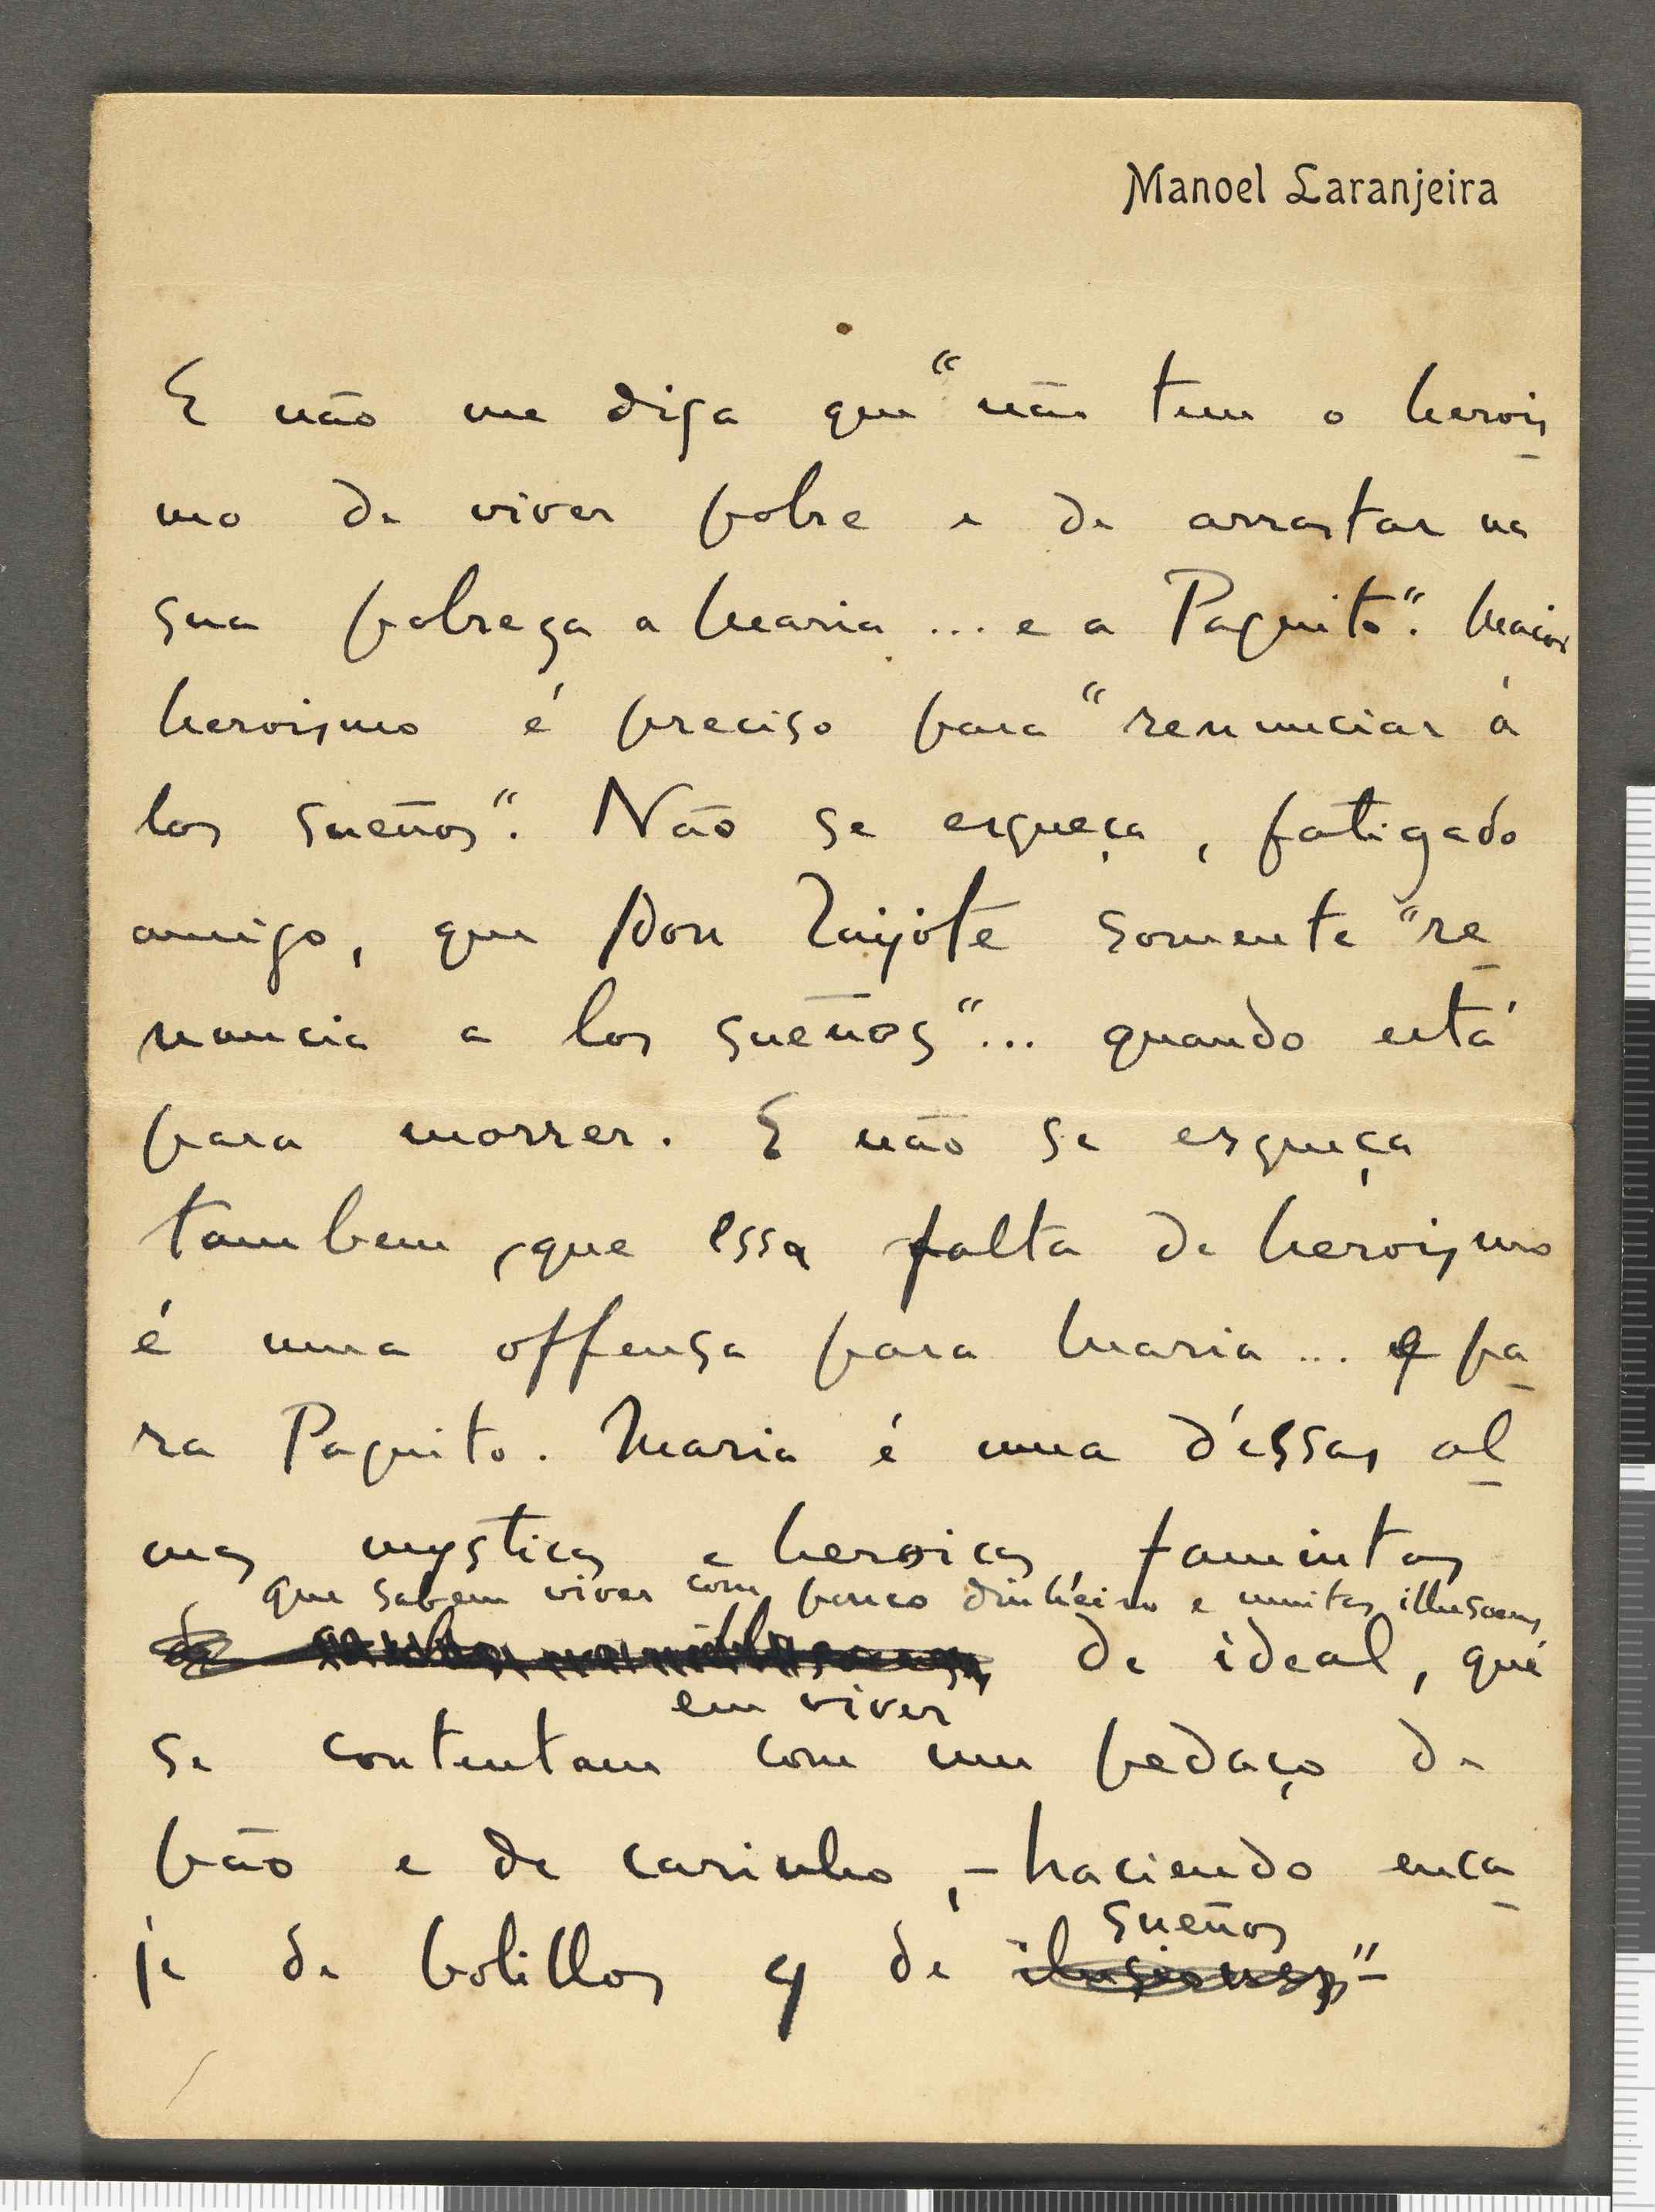 Manoel Laranjeira
E não me diga que “não tem o herois-
mo de viver pobre e de arrastar na
sua pobreza a Maria ... e a Paquito”. Maior
heroismo é preciso para “renunciar á
los sueños”. Não se esqueça, fatigado
amigo, que Don Quijóte somente “re-
nuncia a los sueños”... quando está
para morrer. E não se esqueça
tambem, que essa falta de heroismo
é uma offensa para Maria ... e pa-
ra Paquito. Maria é uma d'éssas al-
mas mysticas e heroicas, famintas
que sabem viver com pouco dinheiro e muitas illusoens,
de ideal, que
em viver
se contentam com um pedaço de
pão e de carinho, – haciendo enca-
sueños
je de bolillos y de ilusiones” –